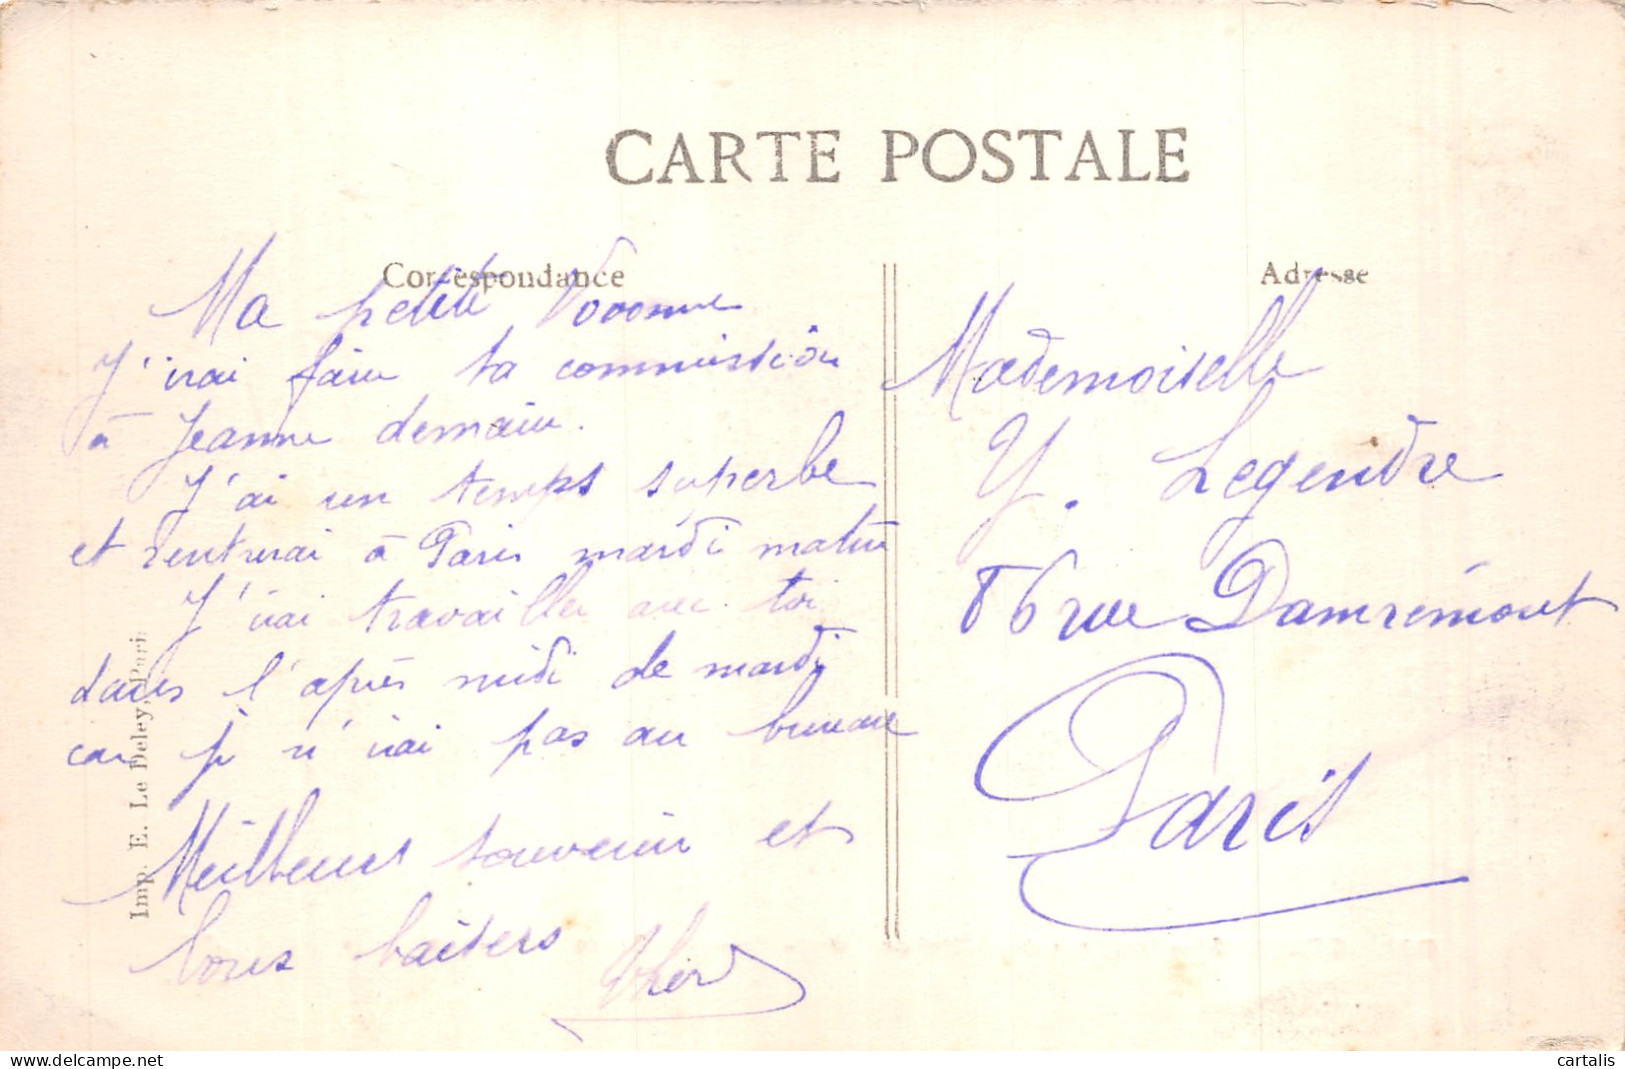 CARTE POSTALE
Correspondance
Adresse
Ma petite
J'irai faire ta commission
à Jeanne demain.
J'ai un temps superbe
et rentrerai à Paris mardi matin
J'irai travailler avec toi
dans l'après midi de mardi
car je n'irai pas au bureau
Meilleurs souvenir et
bons baisers
Mademoiselle
Y. Legendre
86 rue Damrémont
Paris
Imp. E. Le Deley, Paris
www.delcampe.net
cartalis